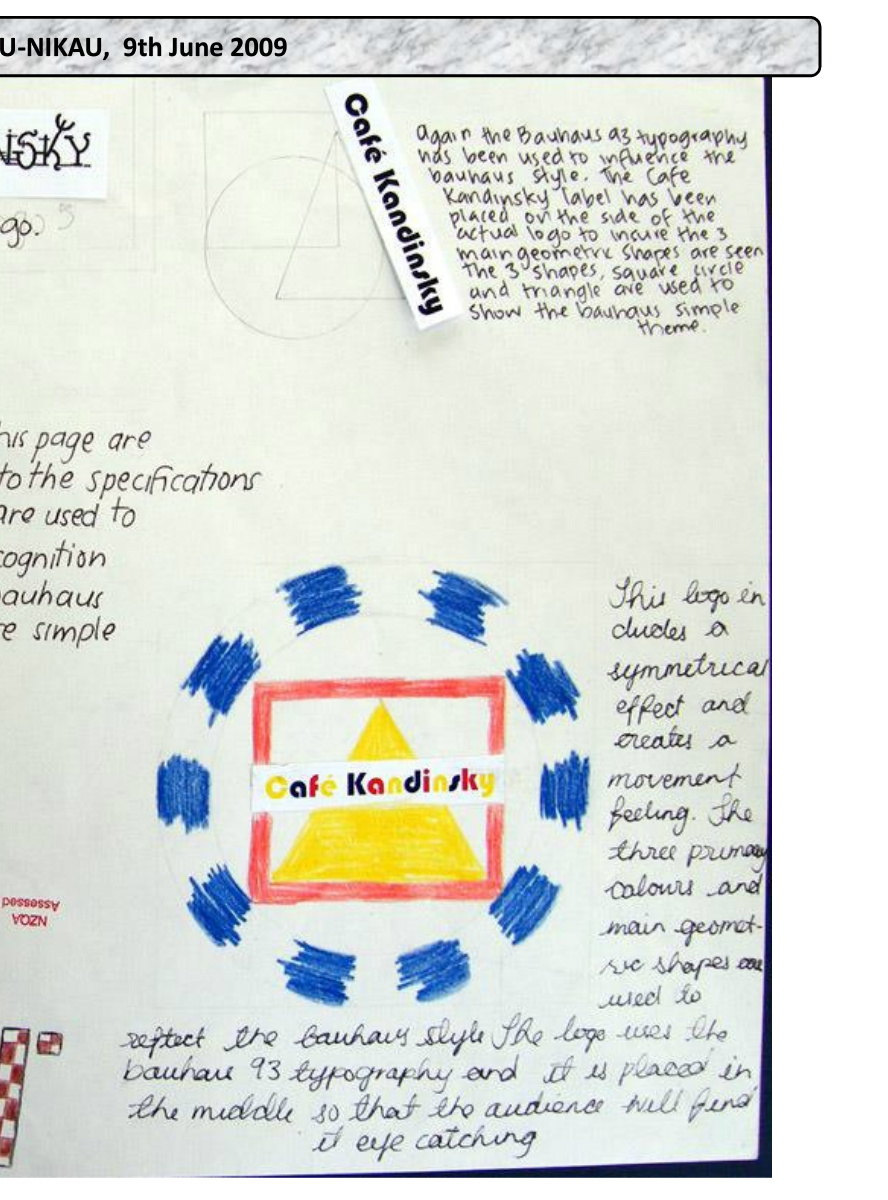 U-NIKAU, 9th June 2009
NSKY
go.
Café Kandinsky
again the Bauhaus 93 typography
has been used to influence the
bauhaus style. The Cafe
Kandinsky label has been
placed on the side of the
actual logo to insure the 3
main geometric shapes are seen
the 3 shapes, square circle
and triangle are used to
show the bauhaus simple
theme.
his page are
to the specifications
are used to
cognition
auhaus
re simple
Café Kandinsky
This logo in
cludes a
symmetrical
effect and
creates a
movement
feeling. The
three primary
colours and
main geomet-
ric shapes are
used to
reflect the bauhaus style The logo uses the
bauhaus 93 typography and it is placed in
the middle so that the audience will find
it eye catching
NZQA
Assessed